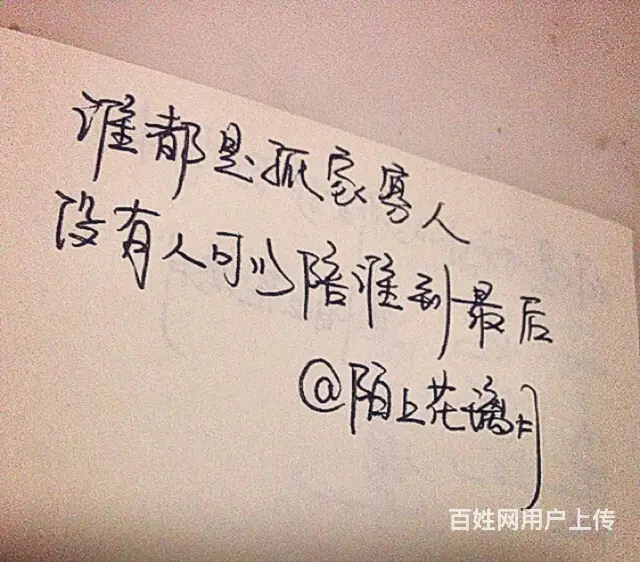 谁都是孤家寡人
没有人可以陪谁到最后
@陌上花璃月
百姓网用户上传